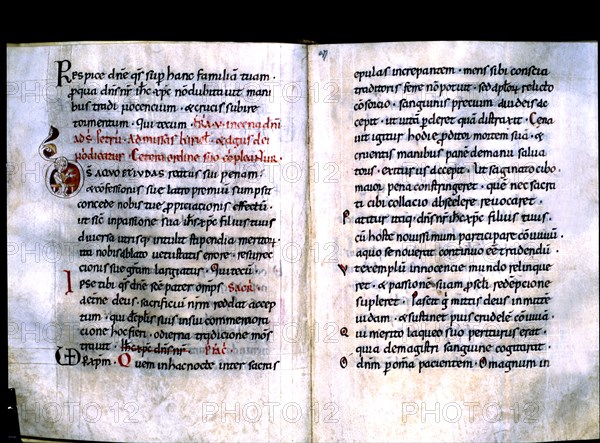 Respice dñe qs sup hanc familiã tuam.
p qua dñs nr ihc xpc nõ dubitavit mani
bus tradi nocencium. & crucis subire
tormentum. Qui tecum.
ads petri. Ad missas
&
DS A QVO & IVDAS reatus sui penam.
& confessionis sue latro premiũ sumpsit
concede nobis tue ppiciacionis effectũ.
ut sic in passione sua ihc xpc filius tuus
diversa utrisq; intulit stipendia meritor
ita nobis ablato vetustatis errore. resurrec
cionis sue grãm largiatur. Qui tecũ.
Ipse tibi qs dñe sce pater omps
& terne deus. sacrificiũ nrm reddat accep
tum. qui discipulis suis in sui commemora
cione hoc fieri. odierna tradicione mons
travit. ihc xpc dñs nr.
p xpm. Quem in hac nocte inter sacras
epulas increpantem. mens sibi conscia
traditoris ferre nõ potuit. sed aplor relicto
consorcio. sanguinis precium a iudeis ac
cepit. ut vitã pderet quã distraxit. Cena
vit igitur hodie pditor mortem suã. &
cruentis manibus panẽ de manu salva
toris. exiturus accepit. Ut saginato cibo
maior pena constringeret. que nec sacra
ti cibi collacio ab scelere revocaret.
Patitur itaq; dñs nr ihc xpc filius tuus.
cũ hoste novissimum participare convivium.
a quo se noverat continuo eẽ tradendũ.
Vt exemplũ innocencie mundo relinque
ret. & passionẽ suam p scli redempcione
supleret. Pascit g mitis deus inmitẽ
iudam. & sustinet pius crudelẽ convivã.
Qui merito laqueo suo periturus erat.
quia de magistri sanguine cogitarat.
O dñm p omia pacientem. O magnum in